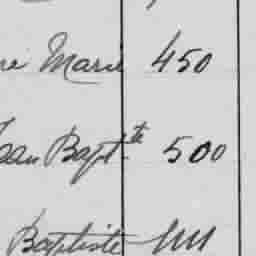 re Marie 450
Jean Bapt te 500
Baptiste